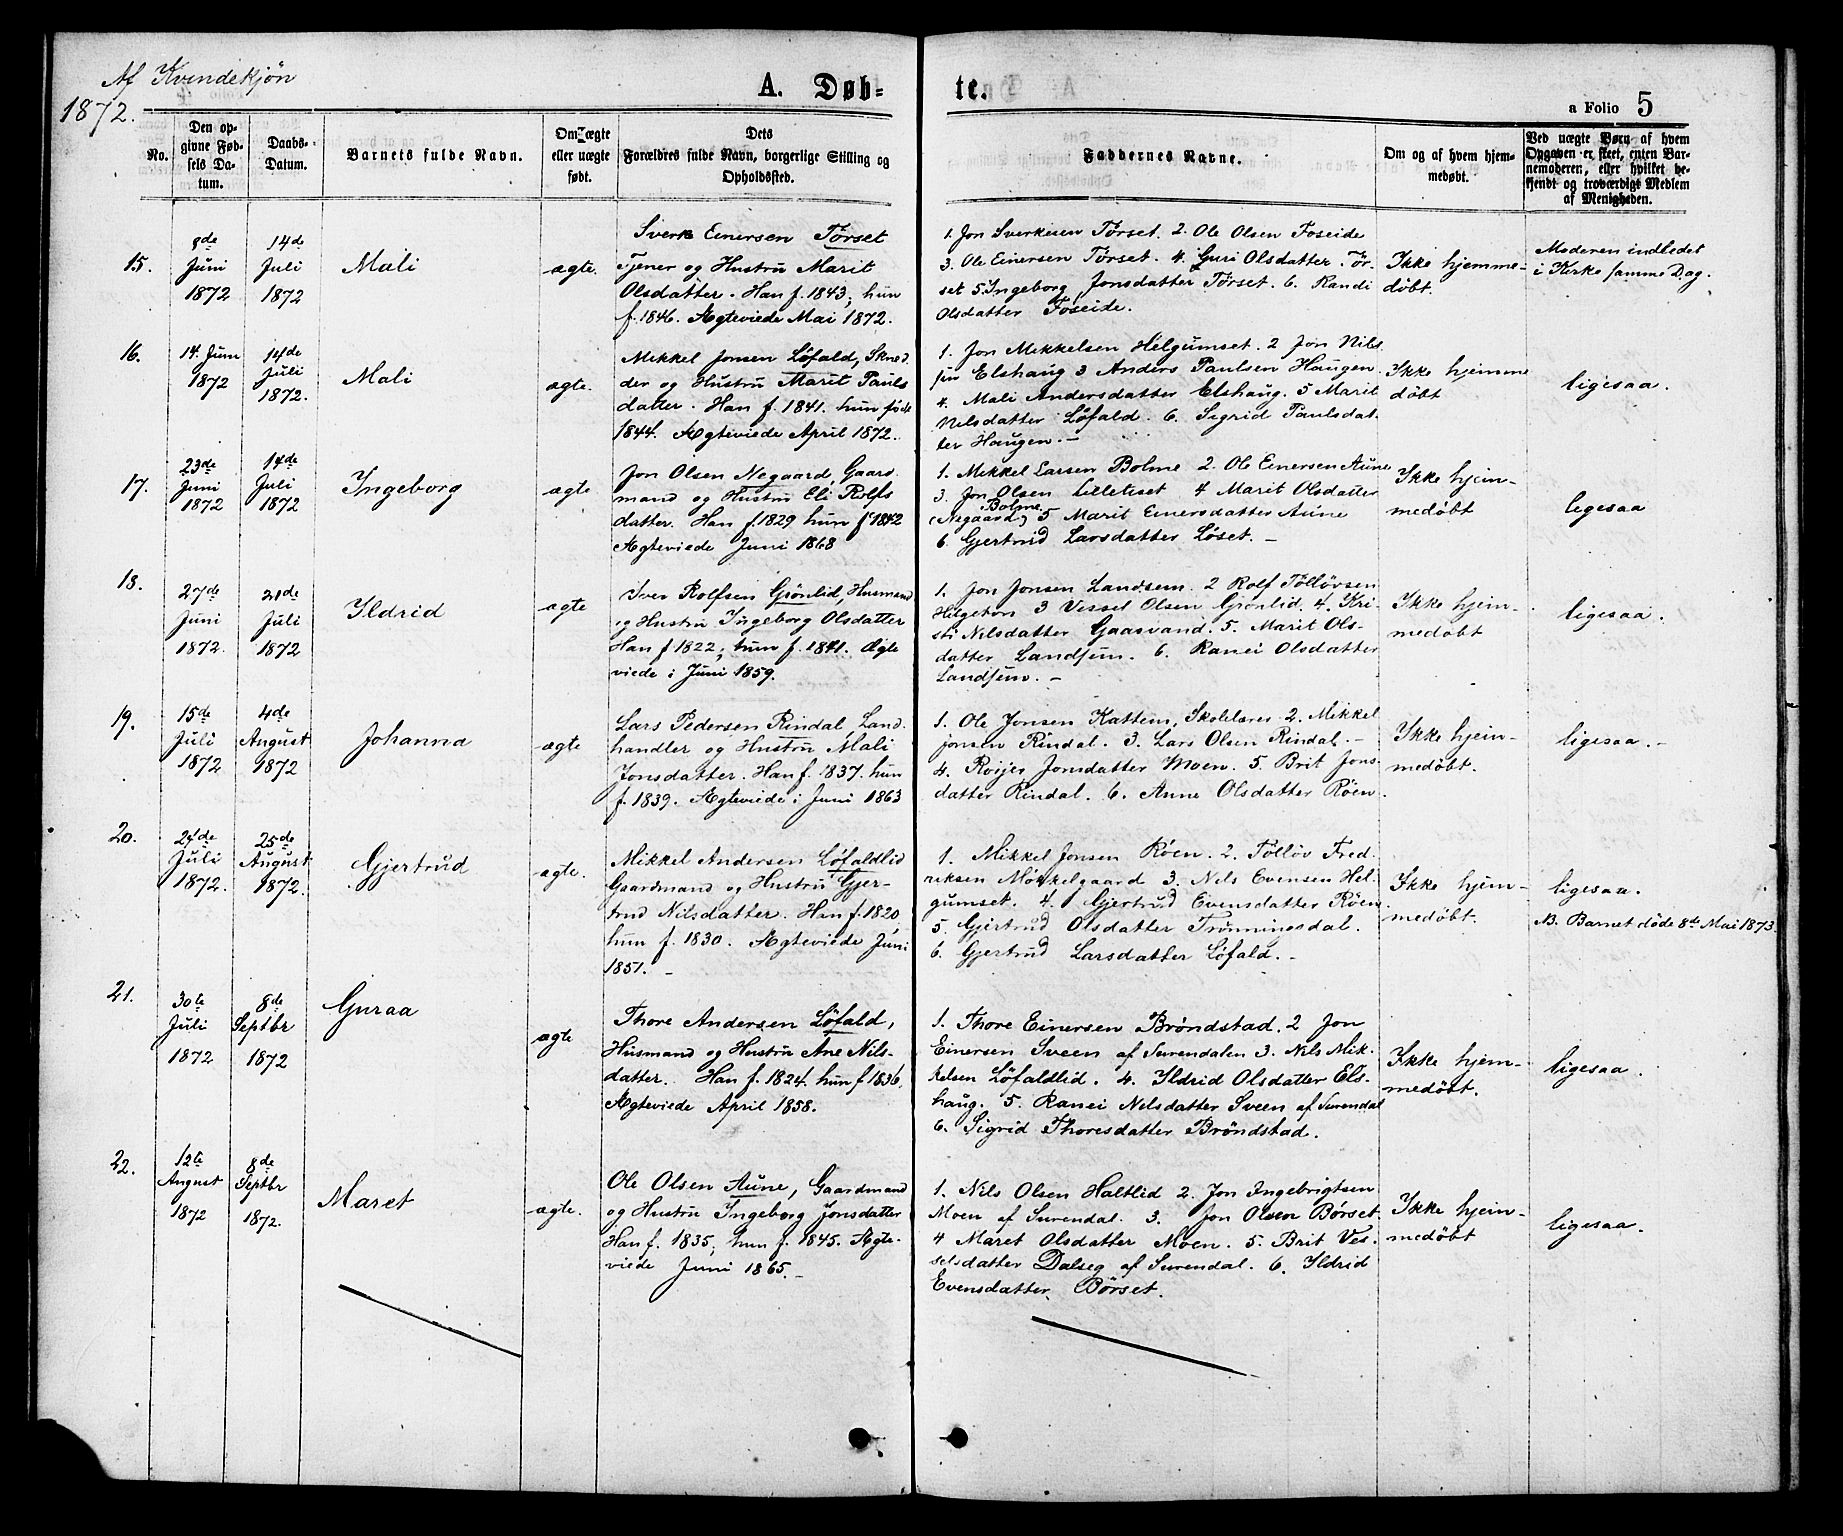 Af Kvindekjøn
1872.
A. Døb-
te.
a Folio 5
No.
Den op-
givne Fød-
sels Da-
tum.
Daabs-
Datum.
Barnets fulde Navn.
Om ægte
eller uægte
født.
Dets
Forældres fulde Navn, borgerlige Stilling og
Opholdssted.
Faddernes Navne.
Om og af hvem hjem-
medøbt.
Ved uægte Børn af hvem
Opgaven er skeet, enten Bar-
nemoderen, eller hvilket be-
kjendt og troværdigt Medlem
af Menigheden.
15.
8de
Juni
1872
14de
Juli
1872
Mali
ægte.
Sverke Einersen Tørset
Tjener og Hustru Marit
Olsdatter. Han f. 1843; hun
f. 1846. Ægteviede Mai 1872.
1. Jon Sverkesen Tørset. 2. Ole Olsen Foseide
3. Ole Einersen Tørset. 4. Guri Olsdatter Tør-
set 5. Ingeborg Jonsdatter Tørset. 6. Randi
Olsdatter Foseide.
Ikke hjemme-
døbt.
Moderen indledet
i Kirke samme Dag.
16.
14. Juni
1872
14de
Juli
1872.
Mali
ægte.
Mikkel Jonsen Løfald, Skræd
der og Hustru Marit Pauls
datter. Han f. 1841. hun føde
1844. Ægteviede April 1872.
1. Jon Mikkelsen Helgumset. 2 Jon Nils
sen Elshaug 3 Anders Paulsen Haugen
4. Mali Andersdatter Elshaug. 5 Marit
Nilsdatter Løfald. 6. Sigrid Paulsdat-
ter Haugen. -
Ikke hjemme
døbt
ligesaa.
17.
23de
Juni
1872
14de
Juli
1872
Ingeborg
ægte
Jon Olsen Negaard, Gaard
mand og Hustru Eli Rolfs
datter. Han f. 1829 hun f 1842
Ægteviede Juni 1868
1. Mikkel Larsen Bolme 2. Ole Einersen Aune
3. Jon Olsen Lilletiset 4 Marit Olsdatter
Bolme
(Negaard) 5 Marit Einersdatter Aune
6. Gjertrud Larsdatter Løset. -
Ikke hjem-
medøbt
ligesaa
18.
27de
Juni
1872.
21de
Juli
1872
Ildrid
ægte
Iver Rolfsen Grønlid, Husmand
og Hustru Ingeborg Olsdatter
Han f 1822; hun f. 1841. Ægte
viede i Juni 1859.
1. Jon Jonsen Landsem. 2 Rolf Tølløvsen
Helgeton 3 Vessel Olsen Grønlid. 4. Kri-
sti Nilsdatter Gaasvand. 5. Marit Ols-
datter Landsem. 6. Ranei Olsdatter
Landsem. -
Ikke hjem-
medøbt
ligesaa.
19.
15de
Juli
1872
4de
August
1872
Johanna
ægte
Lars Pedersen Rindal, Land
handler og Hustru Mali
Jonsdatter. Han f. 1837. hun
f. 1839. Ægteviede i Juni 1863
1. Ole Jonsen Kattem, Skolelærer 2. Mikkel
Jonsen Rindal. 3. Lars Olsen Rindal. -
4. Roijes Jonsdatter Moen. 5. Brit Jons-
datter Rindal. 6. Anne Olsdatter Røen.
Ikke hjem-
medøbt.
ligesaa. -
20.
24de
Juli
1872.
25de
August
1872.
Gjertrud
ægte.
Mikkel Andersen Løfaldlid
Gaardmand og Hustru Gjer-
trud Nilsdatter. Han f. 1820,
hun f. 1830. Ægteviede Juni
1851. -
1. Mikkel Jonsen Røen. 2. Tølløv Fred-
riksen Mokkelgaard 3. Nils Evensen Hel-
gumset. 4. Gjertrud Evensdatter Røen
5. Gjertrud Olsdatter Trønningsdal.
6. Gjertrud Larsdatter Løfald. -
Ikke hjem-
medøbt.
ligesaa.
NB. Barnet døde 8de Mai 1873.
21.
30te
Juli
1872
8de
Septbr
1872
Guraa
ægte
Thore Andersen Løfald,
Husmand og Hustru Ane Nils-
datter. Han f. 1824. hun f 1836.
Ægteviede April 1858.
1. Thore Einersen Brøndstad. 2 Jon
Einersen Sveen af Surendalen 3. Nils Mik-
kelsen Løfaldlid. 4. Ildrid Olsdatter Els-
haug. 5. Ranei Nilsdatter Sveen af Surendal
6. Sigrid Thoresdatter Brøndstad.
Ikke hjem-
medøbt.
ligesaa.
22.
12te
August
1872
8de
Septbr
1872.
Maret
ægte.
Ole Olsen Aune, Gaardmand
og Hustru Ingeborg Jonsdatter
Han f. 1835; hun f. 1845. Ægte-
viede Juni 1865. -
1. Nils Olsen Haltlid 2. Jon Ingebrigtsen
Moen af Surendal. 3. Jon Olsen Børset.
4 Maret Olsdatter Moen. 5. Brit Ves-
selsdatter Dalseg af Surendal. 6. Ildrid
Evensdatter Børset.
Ikke hjem-
medøbt
ligesaa.